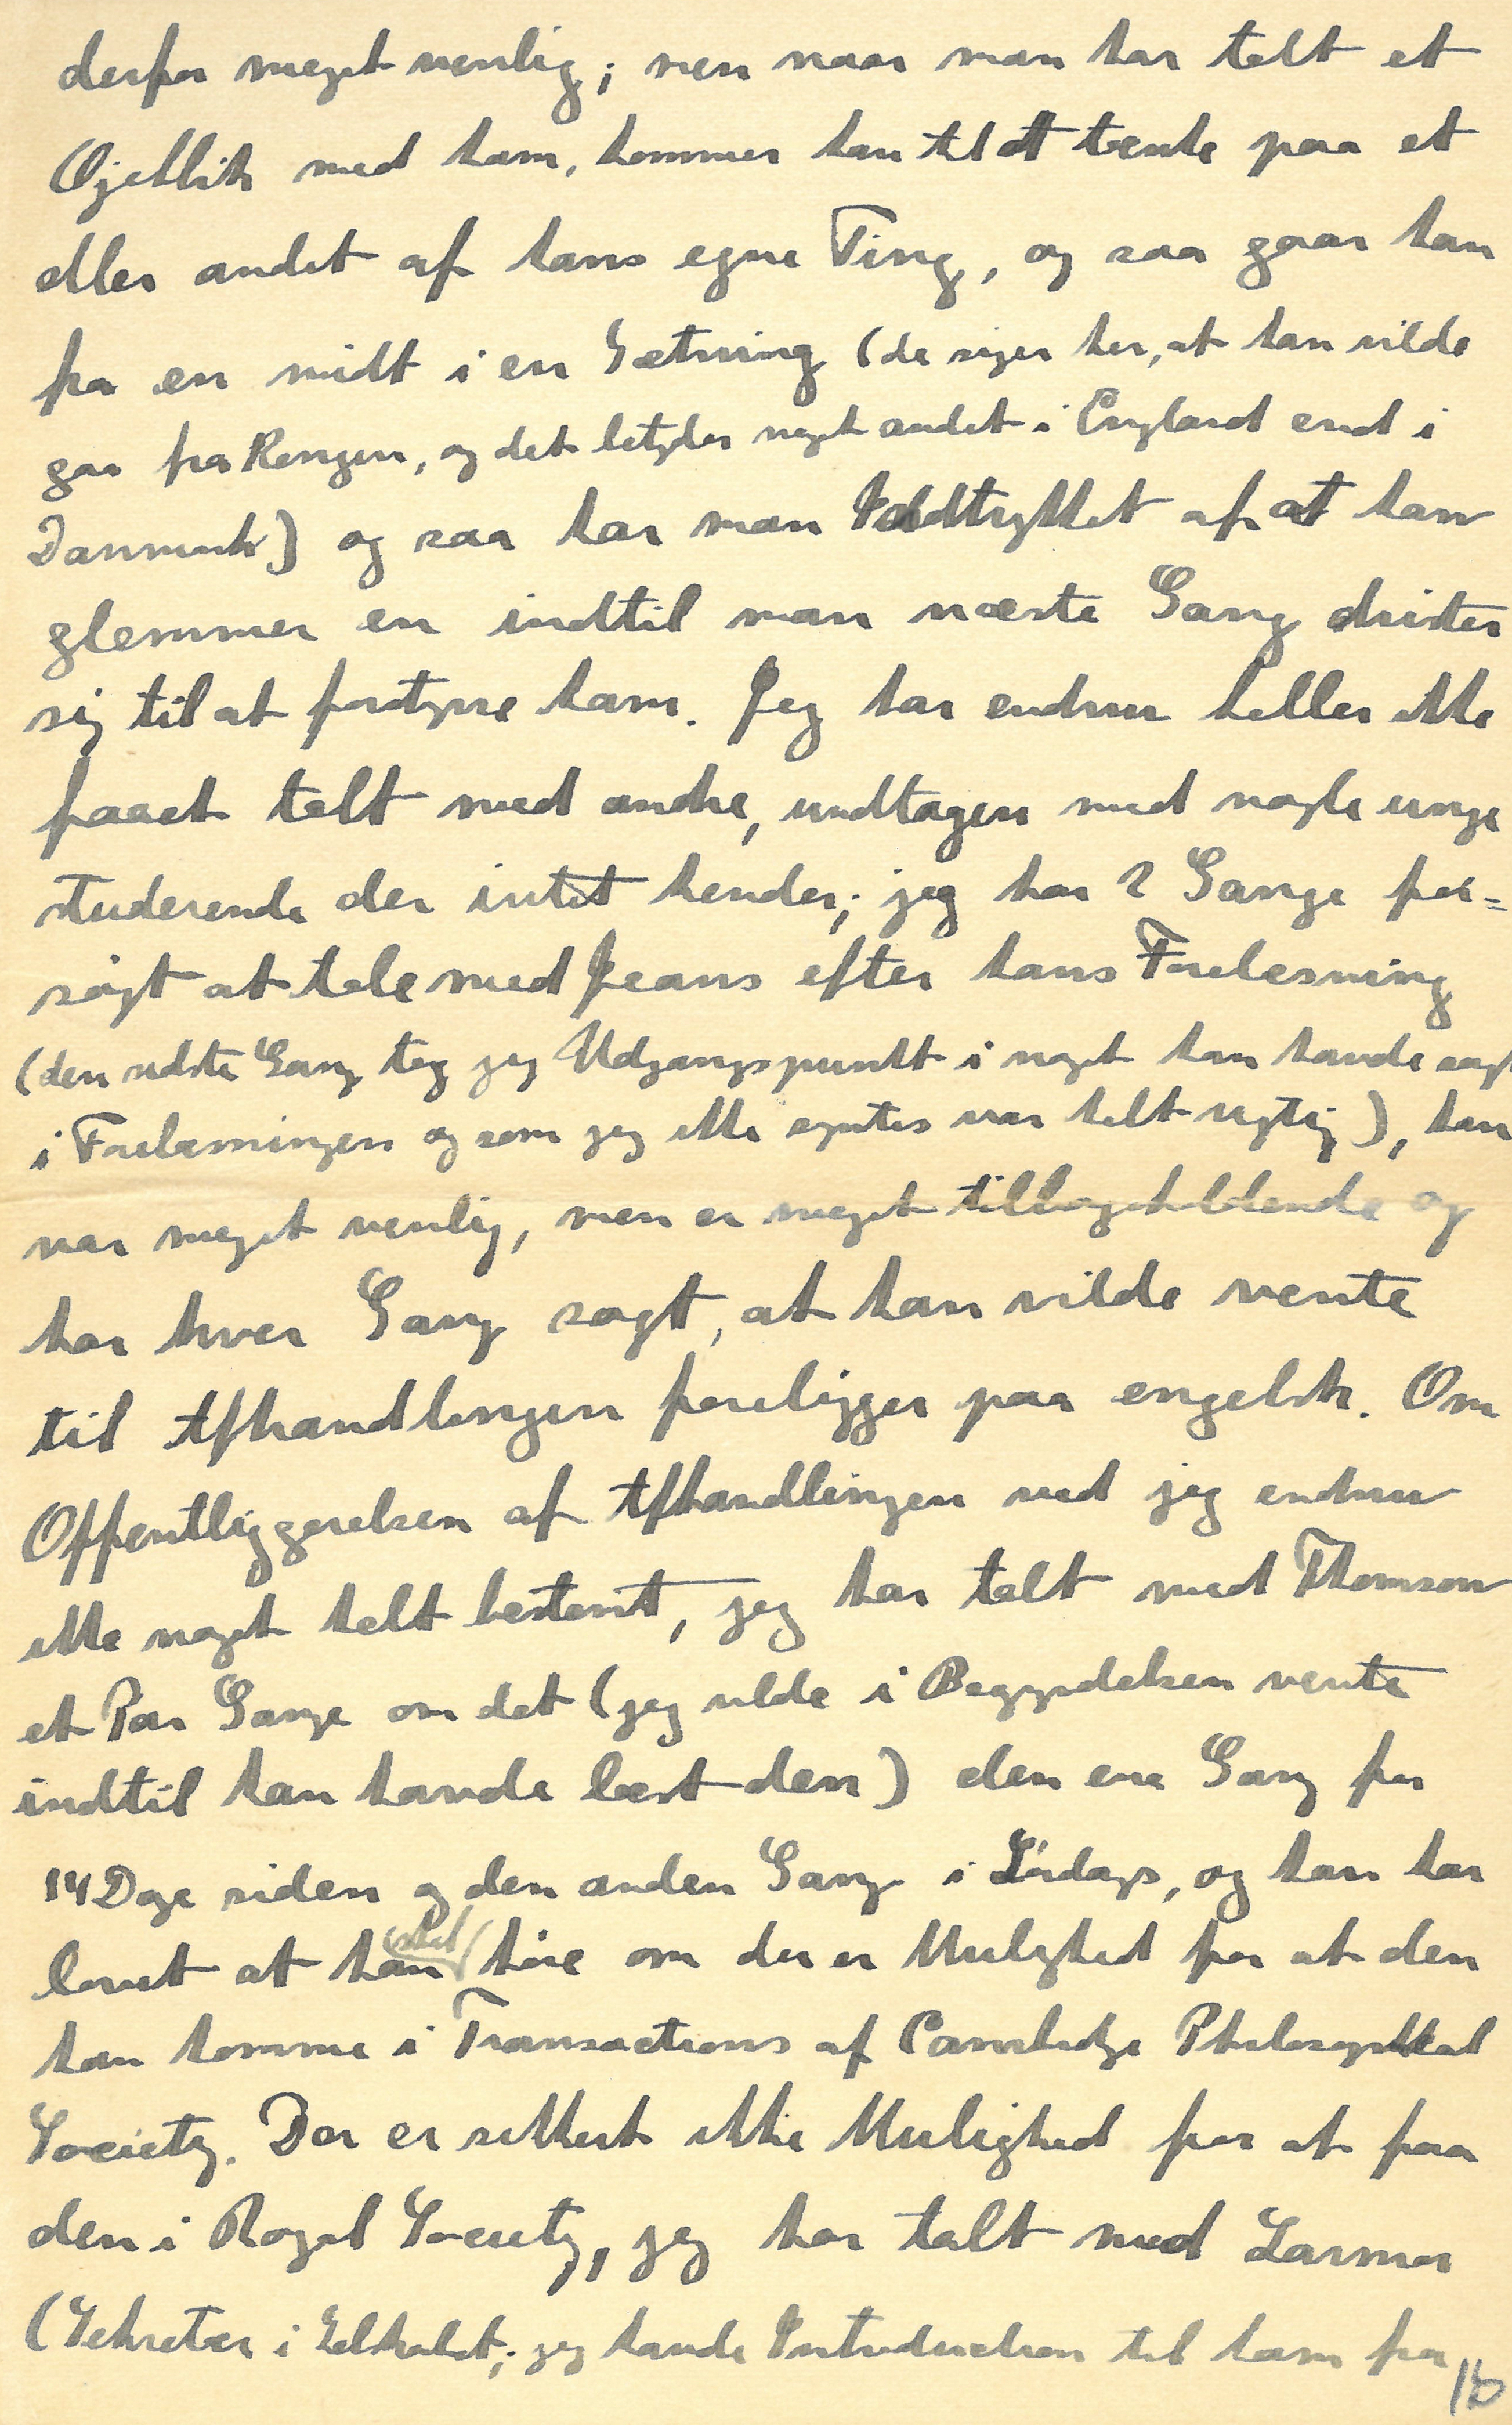 derfor meget venlig; men naar man har talt et
Øjeblik med ham, kommer han til at tænke paa et
eller andet af hans egne Ting, og saa gaar han
fra en midt i en Sætning (de siger her, at han vilde
gaa fra Kongen, og det betyder noget andet i England end i
Danmark) og saa har man Indtrykket af at han
glemmer en indtil man næste Gang drister
sig til at forstyrre ham. Jeg har endnu heller ikke
faaet talt med andre, undtagen med nogle unge
studerende der intet kender; jeg har 2 Gange for=
søgt at tale med Jeans efter hans Forelæsning
(den sidste Gang tog jeg Udgangspunkt i noget han havde sagt
i Forelæsningen og som jeg ikke syntes var helt rigtig), han
var meget venlig, men er meget tilbageholdende og
har hver Gang sagt, at han vilde vente
til Afhandlingen foreligger paa engelsk. Om
Offentliggørelsen af Afhandlingen ved jeg endnu
ikke noget helt bestemt, jeg har talt med Thomson
et Par Gange om det (jeg vilde i Begyndelsen vente
indtil han havde læst den) den ene Gang for
14 Dage siden og den anden Gang i Lørdags, og han har
lovet at han skal høre om der er Mulighed for at den
kan komme i Transactions af Cambridge Philosophical
Society. Der er sikkert ikke Mulighed for at faa
den i Royal Society, jeg har talt med Larmor
(Sekretær i Selskabet; jeg havde Introduction til ham fra
18